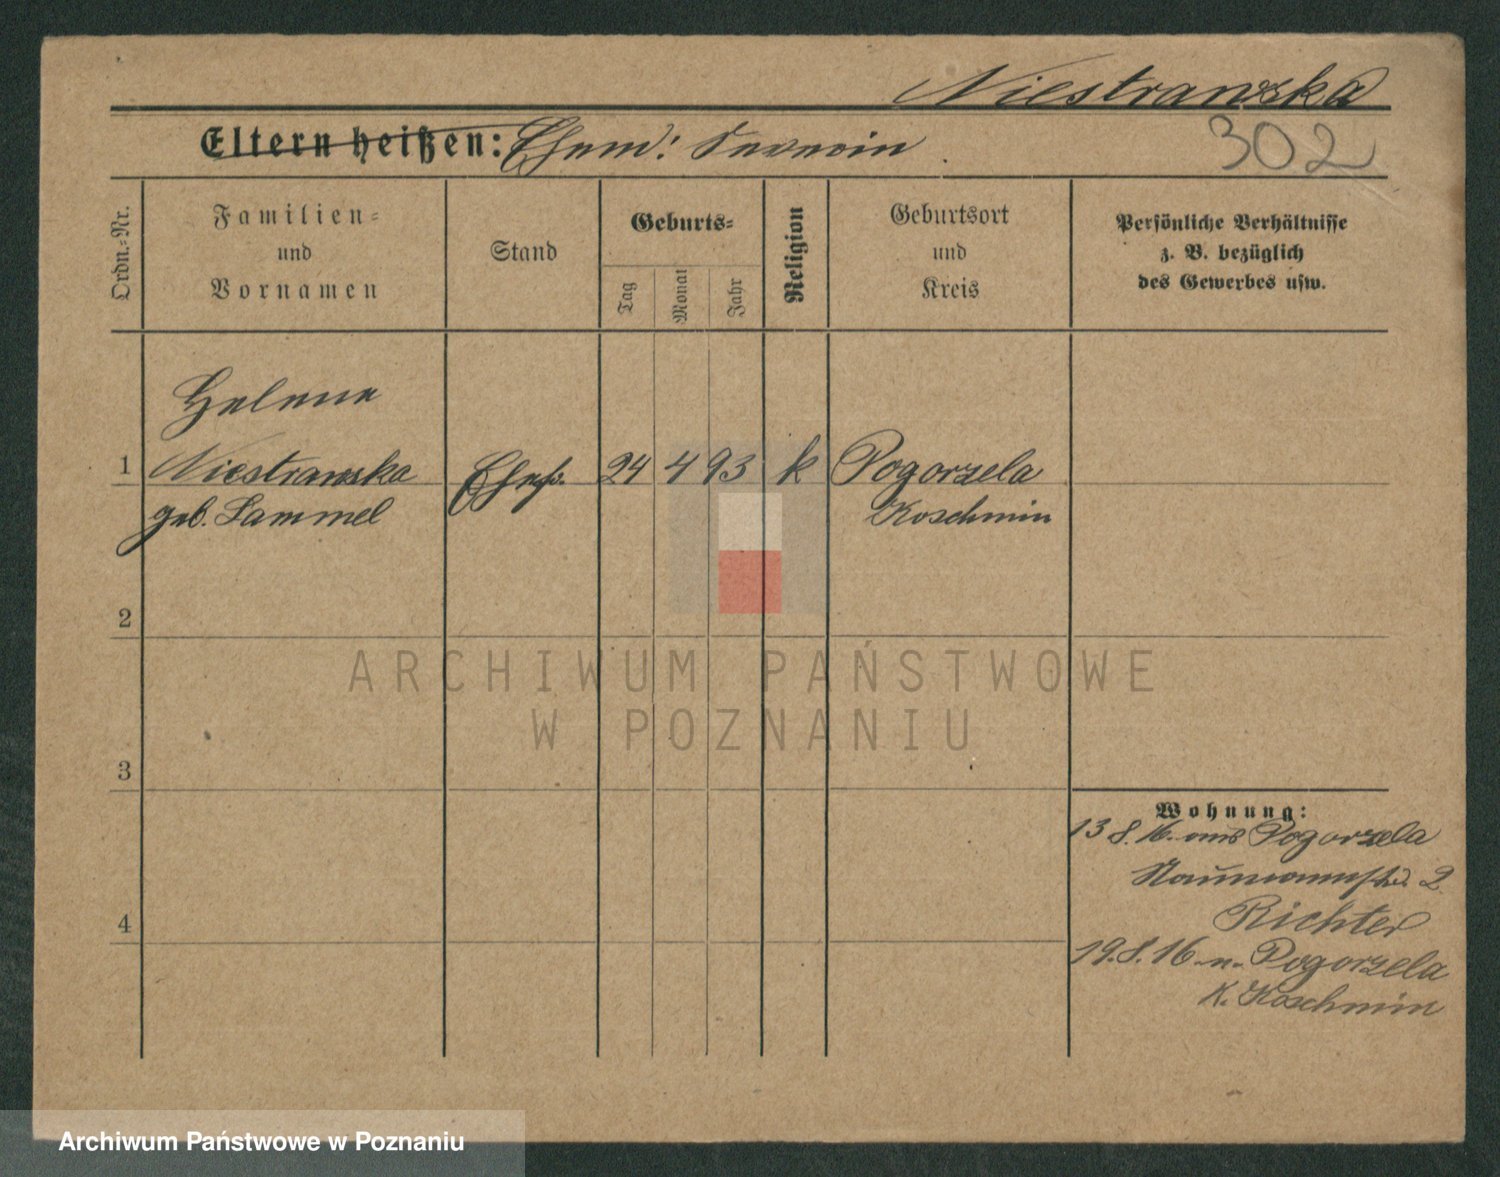 Niestrawska
302
Eltern heißen: Ehem: Severin
Ordn.-Nr.
Familien-
und
Vornamen
Stand
Geburts-
Tag
Monat
Jahr
Religion
Geburtsort
und
Kreis
Persönliche Verhältnisse
z. B. bezüglich
des Gewerbes usw.
Helene
1 Niestrawska Ehefr. 24 4 93 k Pogorzela
geb. Lammel Koschmin
2
3
4
Wohnung:
13 8. 16. aus Pogorzela
Naumannstr. 2
Richter
19. 8. 16 n. Pogorzela
K. Koschmin
ARCHIWUM PAŃSTWOWE
W POZNANIU
Archiwum Państwowe w Poznaniu